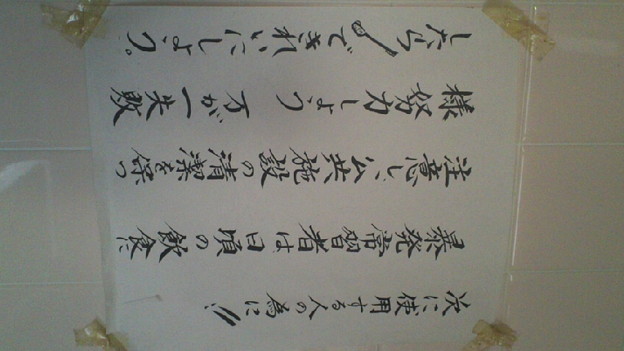 次に使用する人の為に!!
暴発常習者は日頃の飲食に
注意し、公共施設の清潔を保つ
様努力しよう 万が一失敗
したらできれいにしよう。